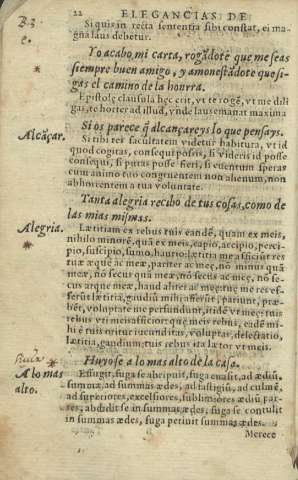 22 ELEGANCIAS DE
Si quis in recta sententia sibi constat, ei ma-
gña laus debetur.
Yo acabo mi carta, rogādote que me seas
siempre buen amigo, y amonestādote que si-
gas el camino de la honrra.
Epistolę clausula hęc erit, vt te rogē, vt me dili
gas, te horter ad illud, vnde laus emanat maxima
Alcāçar.
Si os parece q̄ alcançareys lo que pensays.
Si tibi ter facultatem videtur habitura, vt id
quod cogitas, consequi possis, si videris id posse
consequi, si putas posse fieri, si euentum speras
cum animo tuo congruentem non alienum, non
abhorrentem a tua voluntate.
Tanta alegria recibo de tus cosas, como de
las mias mismas.
Alegria.
Lætitiam ex rebus tuis eandē, quam ex meis,
nihilo minorē, quā ex meis, capio, accipio, perci-
pio, suscipio, sumo, haurio: lætitia me afficiūt res
tuæ æquè ac meæ, pariter ac meę, nō minus quā
meæ, nō secus quā meæ, nō secus ac meę, nō se-
cus atque meæ, haud aliter ac meę: tuę me res ef-
ferūt lætitiā, gaudiū mihi afferūt, pariunt, præ-
bēt, voluptate me perfundunt, itidē vt meę: tuis
rebus vti meis afficior: que meis rebus, eadē mi-
hi è tuis oritur iucunditas, voluptas, delectatio,
lætitia, gaudium: tuis rebus ita lætor vt meis.
Huyose a lo mas alto de la casa.
A lo mas
alto.
Effugit, fuga se abripuit, fuga euasit, ad ædiū,
summa, ad summas ædes, ad fastigiū, ad culmē,
ad superiores, excelsiores, sublimiores ædiū par-
tes, abdidit se in summas ædes, fuga se contulit
in summas ædes, fuga petiuit summas ædes.
Merece